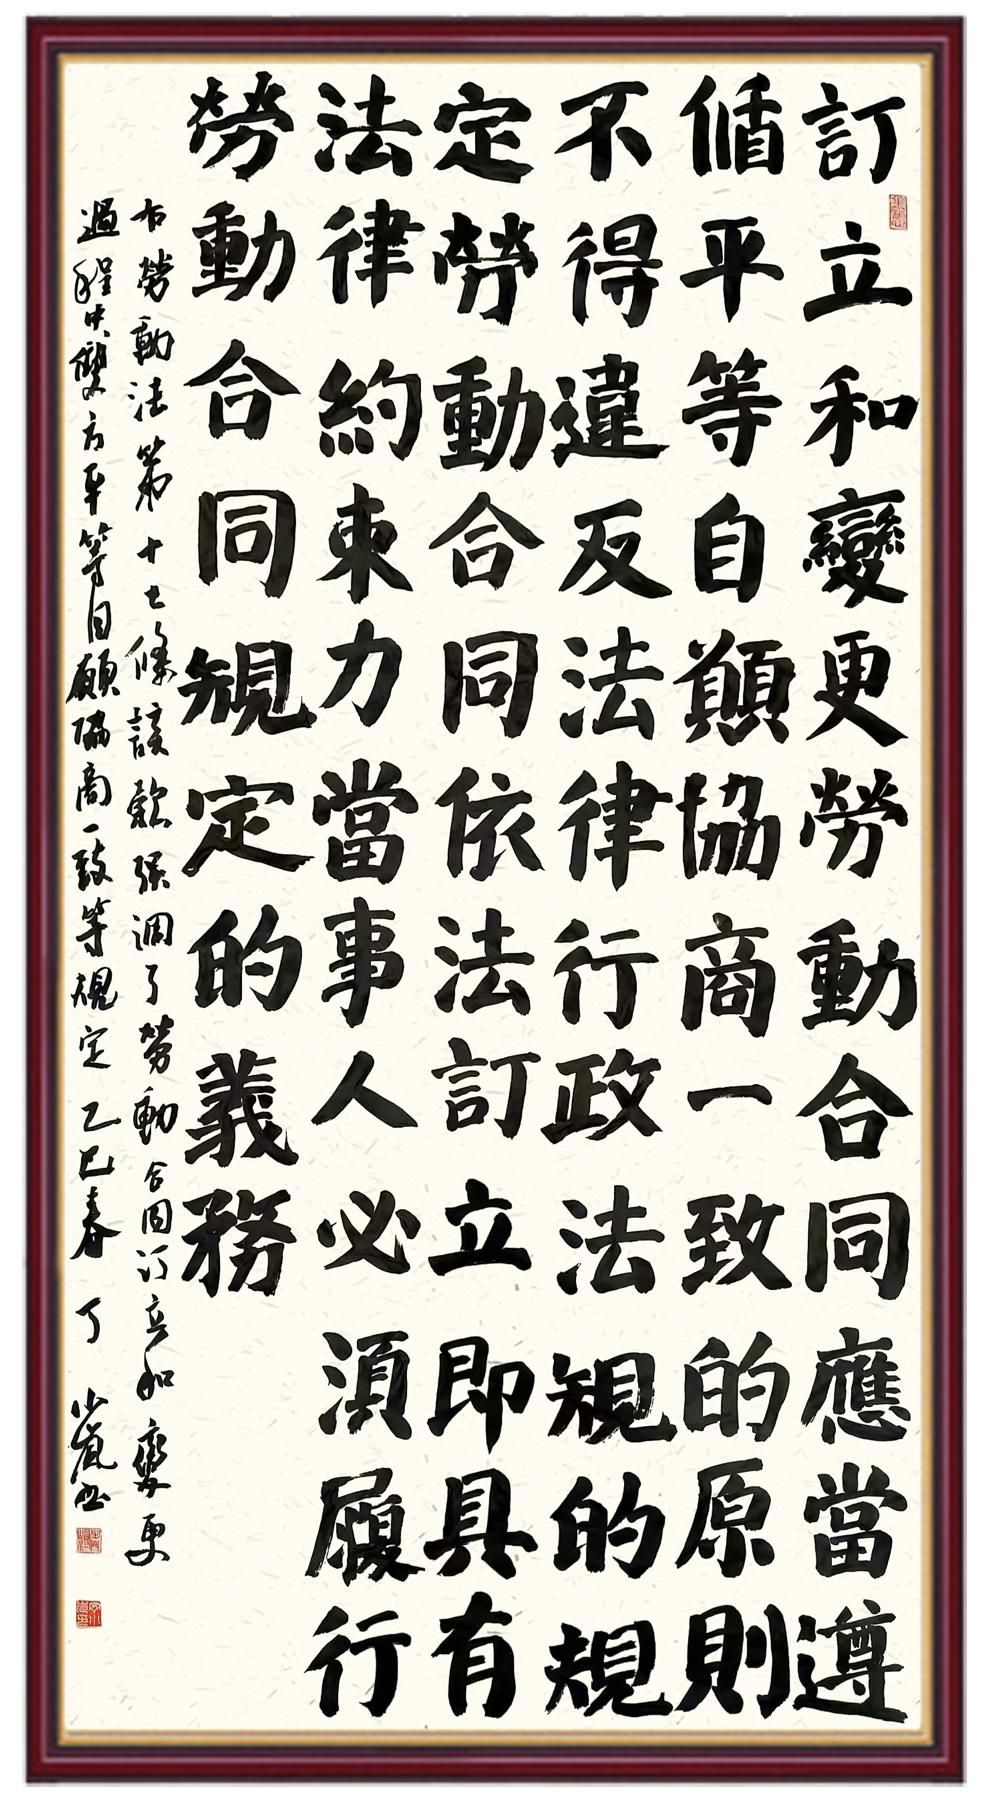 訂立和變更勞動合同應當遵
循平等自願協商一致的原則
不得違反法律行政法規的規
定勞動合同依法訂立即具有
法律約束力當事人必須履行
勞動合同規定的義務
右勞動法第十七條該款强调了勞動合同订立和變更
過程中雙方平等自願協商一致等規定 乙巳春 丁小嵐书